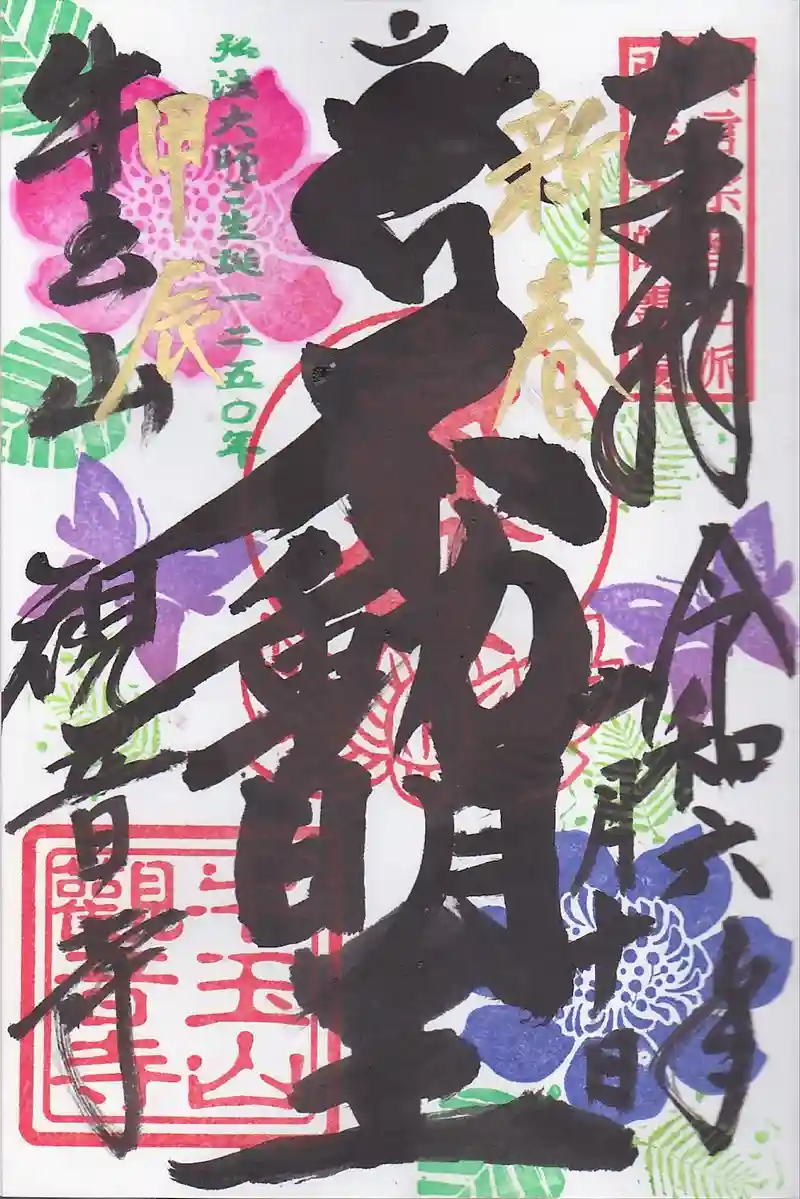 奉拝
令和六年
一月十日
新春
不動明王
弘法大師ご生誕一二五〇年
甲辰
牛玉山
観音寺
牛玉山
觀音寺